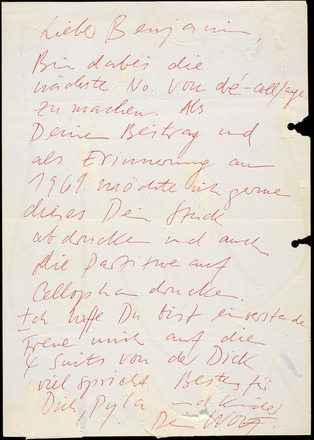 Lieber Benjamin,
Bin dabei die
nächste No. von dé-coll/age
zu machen. Als
Deine Beitrag und
als Erinnerung an
1961 möchte ich gerne
dieses Dein Stück
abdrucken und auch
die Partitur auf
Cellophan drucken
Ich hoffe Du bist einverstanden
Freue mich auf die
4 Suits von der Dick
viel spricht Bestes für
Dich, Pyla
Dein Wolf